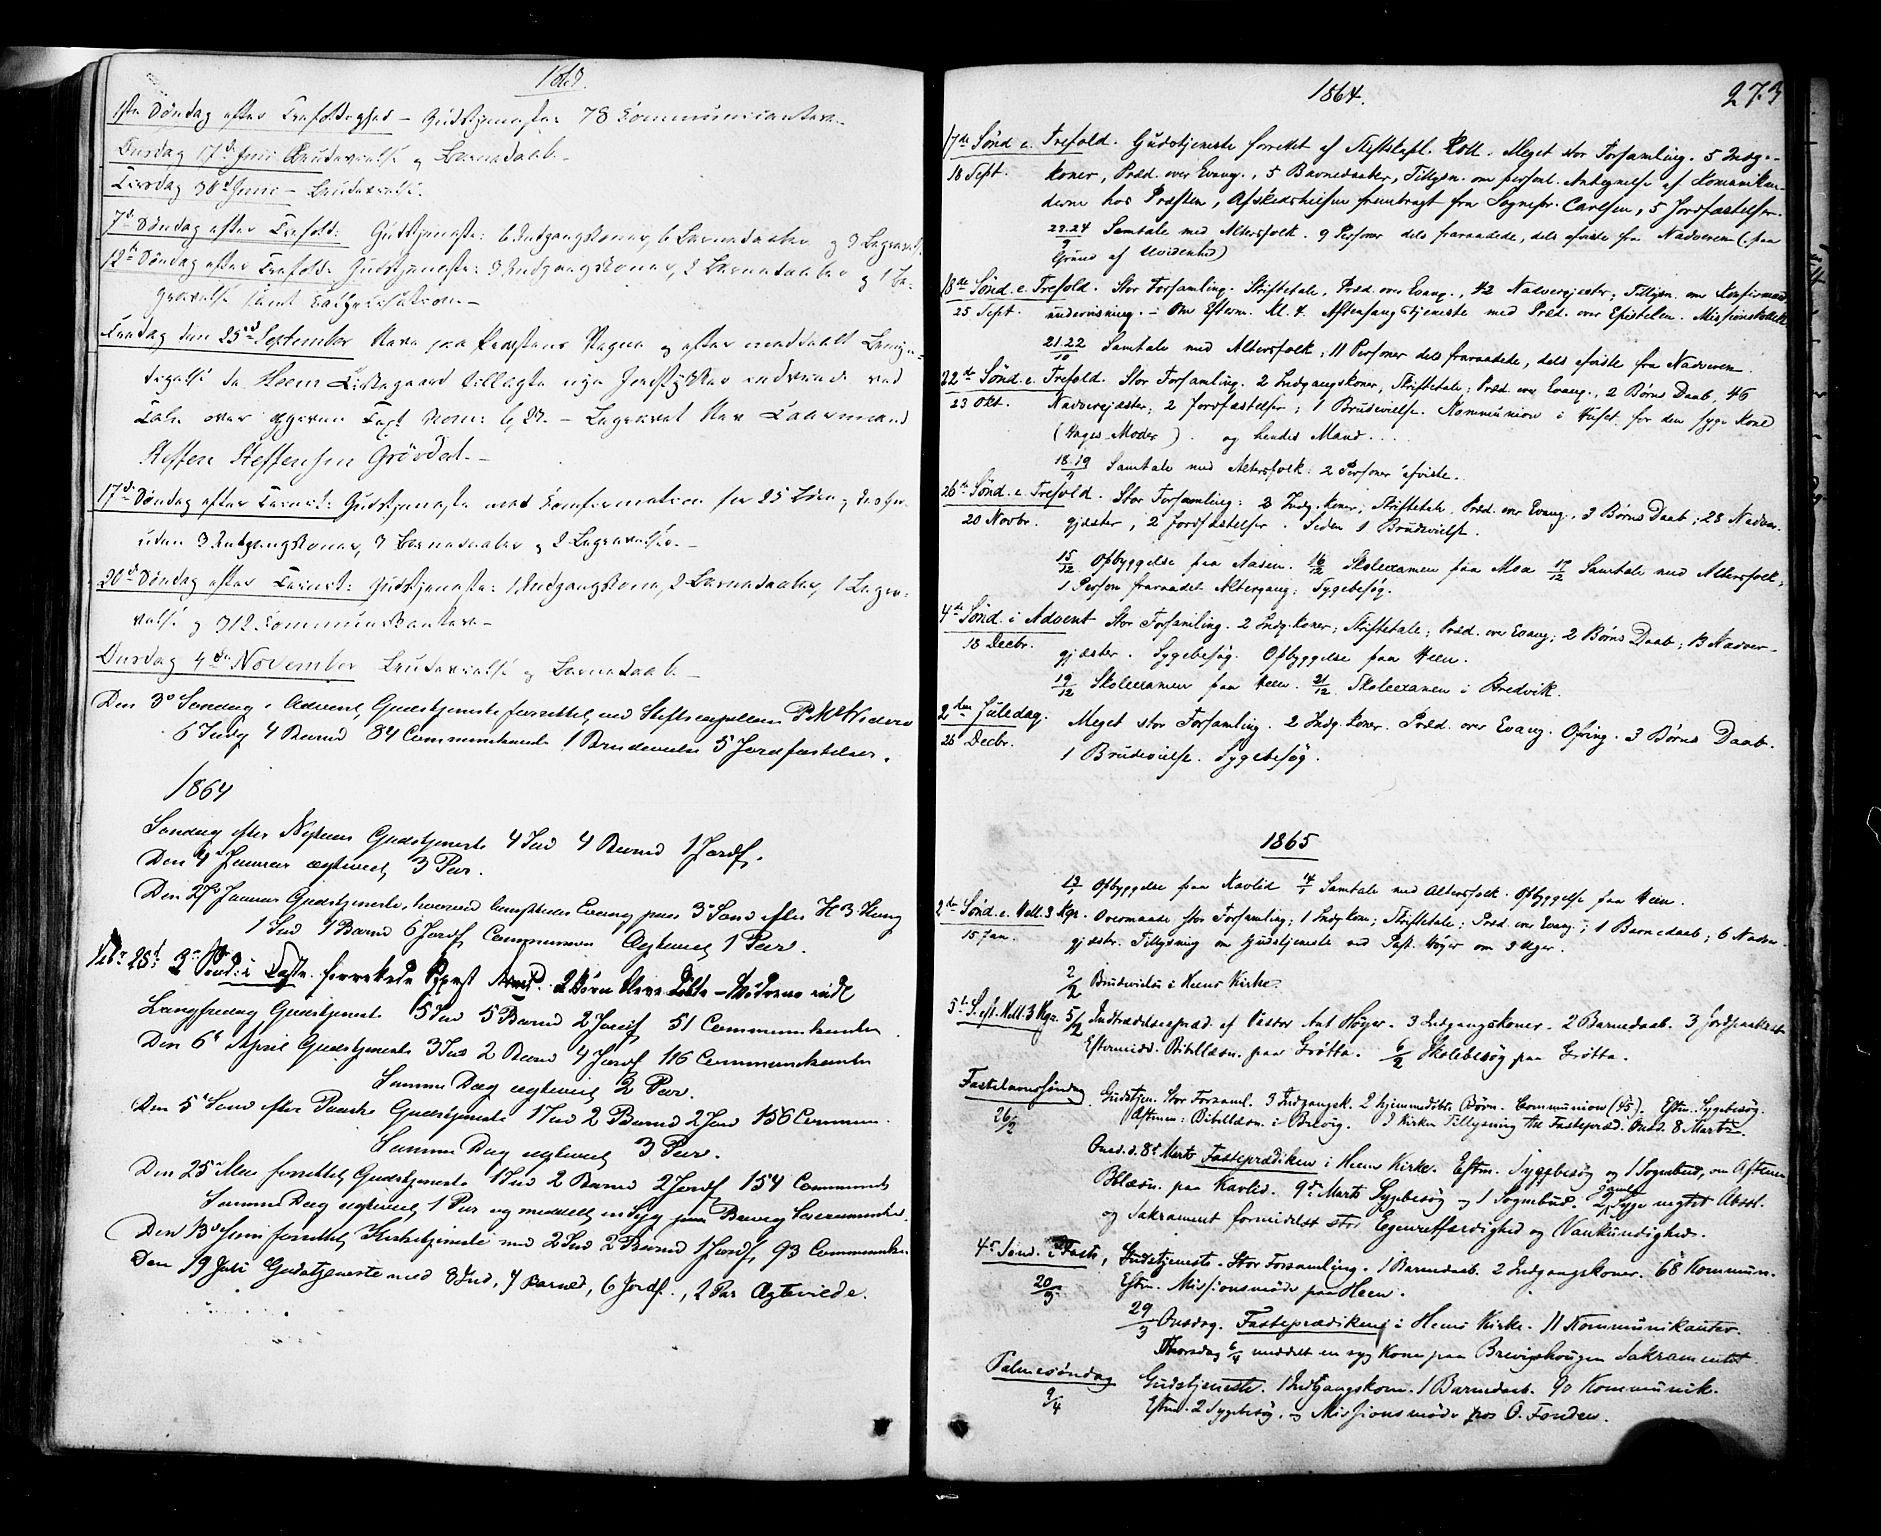 1863.
1ste Søndag efter Trefoldighed – Gudstjeneste: 78 Communicantere.
Onsdag 17de Juni Brudevielse og Barnedaab.
Tirsdag 30te Juni – Brudevielse.
7de Søndag efter Trefold: Gudstjeneste: 6 Indgangskoner, 6 Barnedaaber og 3 Begravels:
12te Søndag efter Trefold: Gudstjeneste: 3 Indgangskoner, 2 Barnedaaber og 1 Be-
gravelse samt
Fredag den 25de September
Heem
Tale over Text Rom: 6, 23. – Begravet blev
Steffen Steffensen Grøvdal. –
17de Søndag efter Trinit: Gudstjeneste med Confirmation for 25 og des for-
uden 3 Indgangskoner, 3 Barnedaaber og 2 Begravelser. –
20de Søndag efter Trinit: Gudstjeneste: 1 Indgangskone, 2 Barnedaaber, 1 Begra-
velse og 312 Communicantere –
Onsdag 4de November Brudevielse og Barnedaab –
Den 3die Søndag i Advent, Gudstjeneste forrettet ved Stiftscapellan
6 Indg 4 Barnd 84 Communikante 1 Brudevielse 5 Jordfæstelser.
1864
Søndag efter Nytaar Gudstjeneste 4 Ind 4 Barnd 1 Jordf.
Den 4de Januar ægteviet 3 Par.
Den 27de Januar Gudstjeneste, 3die Sønd efter H 3 Kong
1 Ind 1 Barnd 6 Jordf Communion Ægteviet 1 Par.
Feb. 28de 3die Sønd: i Faste.
Langfredag Gudstjeneste 5 Ind 5 Barnd 2 Jordf 51 Communikanter
Den 6te April Gudstjeneste 3 Ind 2 Barnd 4 Jordf 116 Communikanter
Samme Dag ægteviet 2 Par.
Den 5te Sønd efter Paaske Gudstjeneste 1 Ind 2 Barnd 2 Jord 156 Commun.
Samme Dag ægteviet 3 Par.
Den 25de Mai forrettet Gudstjeneste 1 Ind 2 Barnd 2 Jordf 154 Communik
Samme Dag ægteviet 1 Par og meddelt en Syg paa Brevig Sacramentet.
Den 13de Juni forrettet Kirketjeneste med 2 Ind 2 Barnd 1 Jordf, 93 Communikn.
Den 19 Juli Gudstjeneste med 8 Ind, 7 Barned, 6 Jordf., 2 Par Ægteviede.
1864.
273
17de Sønd. e. Trefold. Gudstjeneste forrettet af Stiftskapl. Kold. Meget stor Forsamling. 5 Indg.-
18 Sept. koner, Præd. over Evang., 5 Barnedaaber, Tillysn. om personl. Antegnelse af Kommunikan-
derne hos Præsten, Afskedshilsen frembragt fra Sognepr. Carlsen, 5 Jordfæstelser.
23.24/9 Samtale med Altersfolk. 9 Personer dels fraraadede, dels afviste fra Nadveren (paa
Grund af Uvidenhed)
18de Sønd. e. Trefold. Stor Forsamling. Skriftetale, Præd. over Evang., 42 Nadvergjæster; Tillysn. om Konfirmand-
25 Sept. undervisning. – Om Efterm. Kl. 4. Aftensangstjeneste med Præd. over Epistelen. Missionskollekt
21.22/10 Samtale med Altersfolk; 11 Personer dels fraraadede, dels afviste fra Nadveren.
22de Sønd. e. Trefold. Stor Forsamling. 2 Indgangskoner, Skriftetale; Præd. over Evang., 2 Børns Daab, 46
23 Okt. Nadvergjæster; 2 Jordfæstelser; 1 Brudevielse. Kommunion i Huset for den syge Kone
(Hages Moder). og hendes Mand ....
18.19/11 Samtale med Altersfolk: 2 Personer afviste.
26de Sønd. e. Trefold. Stor Forsamling: 2 Indg. koner; Skriftetale, Præd. over Evang., 3 Børns Daab; 28 Nadver-
20 Novbr. gjæster, 2 Jordfæstelser. Siden 1 Brudevielse.
15/12 Opbyggelse paa Aasen. 16/12 Skoleexamen paa Moa 17/12 Samtale med Altersfolk;
1 Person fraraadet Altergang; Sygebesøg.
4de Sønd. i Advent Stor Forsamling. 2 Indg. koner; Skriftetale; Præd. over Evang; 2 Børns Daab; 13 Nadver-
18 Decbr. gjæster. Sygebesøg. Opbyggelse paa Heen.
19/12 Skoleexamen paa Heen. 21/12 Skoleexamen i Bredvik.
2den Juledag. Meget stor Forsamling. 2 Indg. koner. Præd. over Evang. Ofring. 3 Børns Daab.
26 Decbr. 1 Brudevielse. Sygebesøg.
1865
13/1 Opbyggelse paa Kavlid 14/1 Samtale med Altersfolk. Opbyggelse paa Heen.
2den Sønd. e. Hell. 3 Kgr. Overmaade stor Forsamling; 1 Indg. kone; Skriftetale; Præd. over Evang.; 1 Barnedaab; 6 Nadver-
15 Jan. gjæster. Tillysning om Gudstjeneste ved Past. Høyer om 3 Uger.
2/2 Brudevielse i Heens Kirke.
5te S. eft. Hell. 3 Kgr. 5/2 Indtrædelsespræd. af Pastor Ant Høyer. 3 Indgangskoner. 2 Barnedaab. 3 Jordpaakast.
Eftermidd. Bibellæsn. paa Grøtta. 6/2 Skolebesøg paa Grøtta.
Fastelavnssøndag Gudstjen. Stor Forsaml. 3 Indgangsk. 2 hjemmedøbte Børn. Communion (45). Eftm. Sygebesøg.
26/2 Aftenen: Bibellæsn. i Brevig. I Kirken Tillysning til Fastepræd. Onsd. 8 Marts.
Onsd. d. 8de Marts Fasteprædiken i Heens Kirke. Eftm. Sygebesøg og 1 Sognebud, om Aftenen
Biblæsn. paa Kavlid. 9de Marts Sygebesøg og 1 Sognebud. 2 gamle Syge negtet Absol.
og Sakrament formedelst stor Egenretfærdighed og Vankundighed.
4de Sønd. i Faste, Gudstjeneste. Stor Forsamling. 1 Barnedaab. 2 Indgangskoner. 68 Kommun.
20/3 Eftm. Missionsmøde paa Heen.
29/3 Onsdag. Fasteprædiken i Heens Kirke. 11 Kommunikanter.
Thorsdag 6/4 meddelt en syg Kone paa Brevighougen Sakramentet.
Palmesøndag Gudstjeneste. 1 Indgangskone. 1 Barnedaab. 90 Kommunik.
9/4 Eftm. 2 Sygebesøg. og Missionsmøde hos O. Fonden.